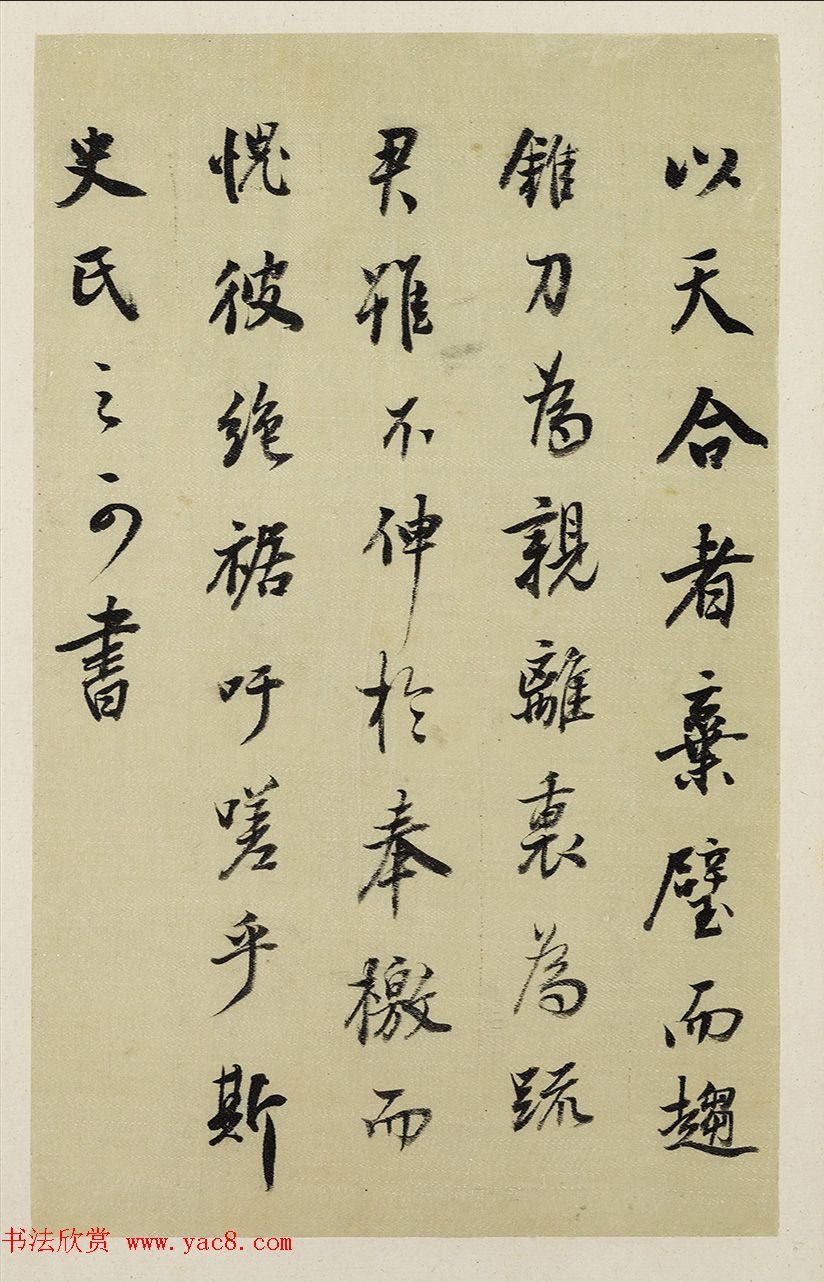 以天合者棄璧而趨
錐刀為親離裏為疏
君雖不伸於奉檄而
愧彼絕裾吁嗟乎斯
史氏之可書
书法欣赏 www.yac8.com